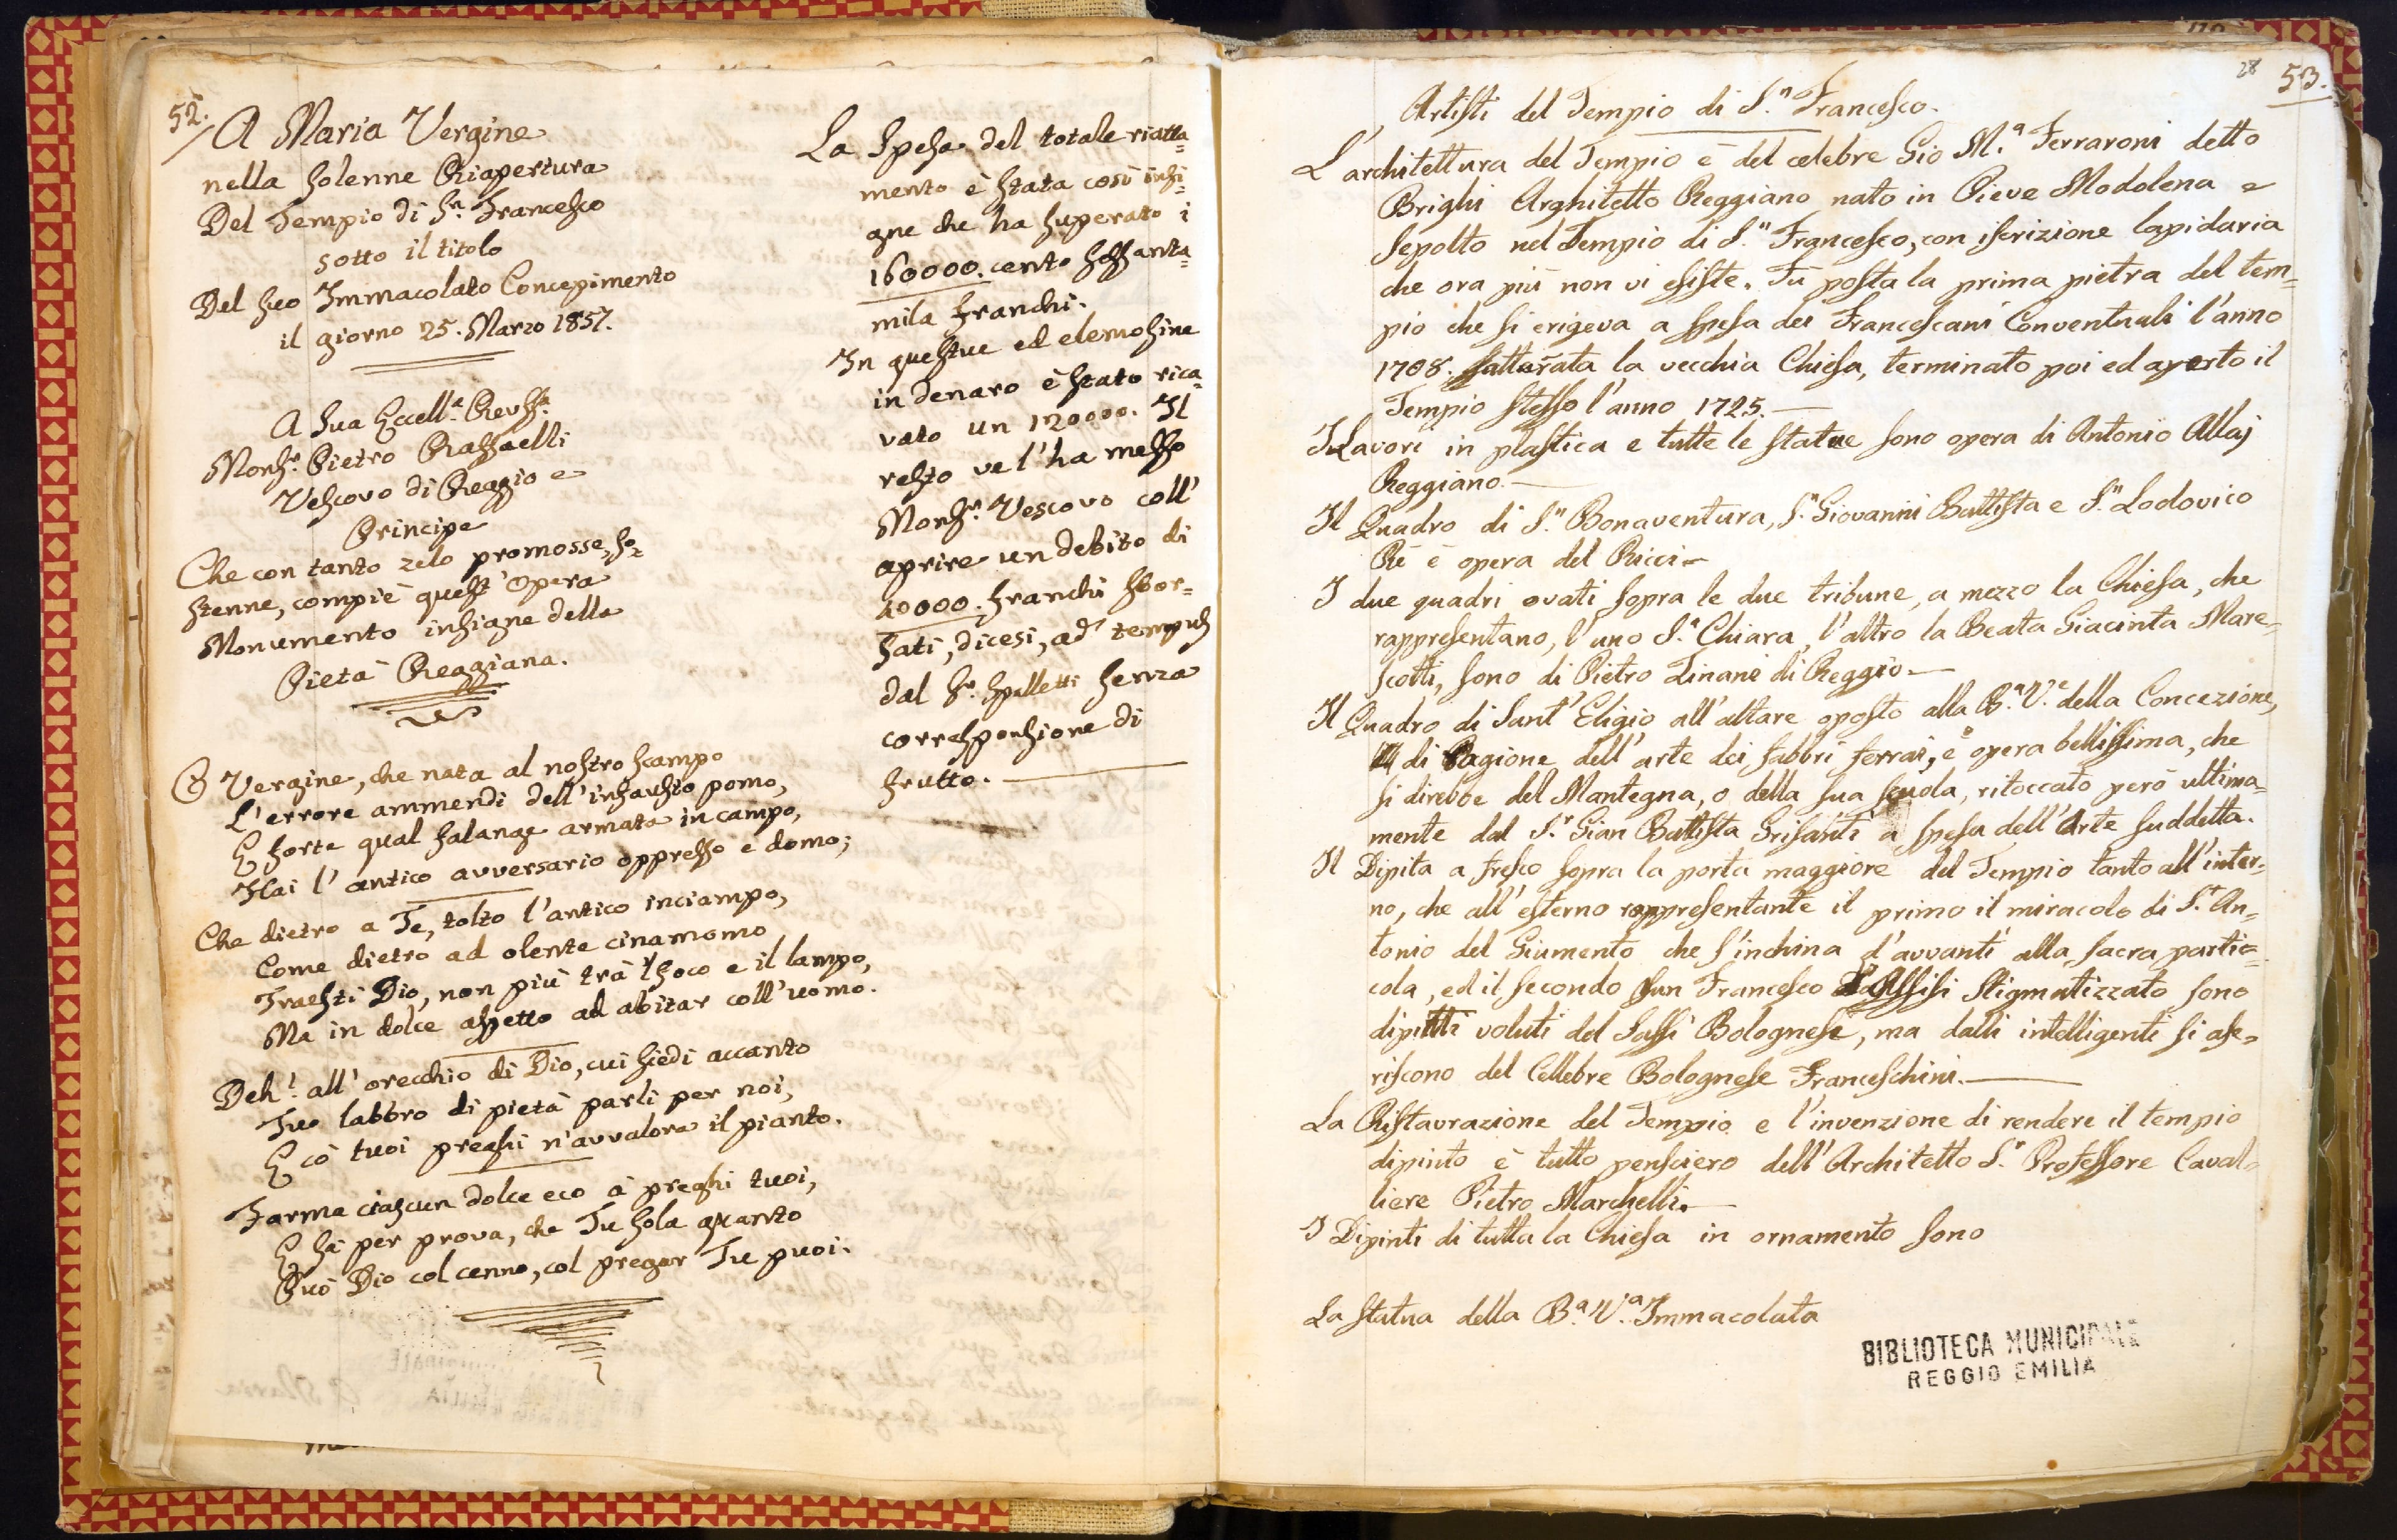 52.
A Maria Vergine
nella solenne Riapertura
Del Tempio di Sn. Francesco
sotto il titolo
Del suo Immacolato Concepimento
il giorno 25. Marzo 1857.
A Sua Eccell.a Revss.a
Mons.r Pietro Raffaelli
Vescovo di Reggio e
Principe
Che con tanto zelo promosse, so=
stenne, compiè quest'Opera
Monumento insigne della
Pietà Reggiana.
O Vergine, che nata al nostro scampo
L'errore ammendi dell'infausto pomo,
E forte qual falange armata in campo,
Hai l'antico avversario oppresso e domo;
Che dietro a Te, tolto l'antico inciampo,
Come dietro ad olente cinamomo
Traesti Dio, non più trà 'l foco e il lampo,
Ma in dolce aspetto ad abitar coll'uomo.
Deh! all'orecchio di Dio, cui siedi accanto
Tuo labbro di pietà parli per noi,
E cò tuoi preghi n'avvalora il pianto.
Farma ciascun dolce eco à preghi tuoi,
E sà per prova, che Tu sola quanto
Può Dio col cenno, col pregar Tu puoi.
La Spesa del totale riatta=
mento è stata così insi=
gne che ha superato i
160000. cento sessanta=
mila franchi.
In questue ed elemosine
in denaro è stato rica=
vato un 120000. Il
resto ve l'ha messo
Mons.r Vescovo coll'
aprire un debito di
40000. franchi sbor=
sati, dicesi, ad tempus
dal Sr. Spalletti senza
corresponsione di
frutto.
28 53.
Artisti del Tempio di S.n Francesco.
L'architettura del Tempio è del celebre Gio M.a Ferraroni detto
Brighi Arghitetto Reggiano nato in Pieve Modolena e
sepolto nel Tempio di S.n Francesco, con iscrizione lapidaria
che ora più non vi esiste. Fù posta la prima pietra del tem=
pio che si erigeva a spesa dei Francescani Conventuali l'anno
1708. atturata la vecchia Chiesa, terminato poi ed aperto il
Tempio stesso l'anno 1725.
I Lavori in plastica e tutte le statue sono opera di Antonio Allaj
Reggiano.
Il Quadro di S.n Bonaventura, S.n Giovanni Battista e S.n Lodovico
Rè è opera del Ricci.
I due quadri ovati sopra le due tribune, a mezzo la Chiesa, che
rappresentano, l'uno S.a Chiara, l'altro la Beata Giacinta Mare=
scotti, sono di Pietro Zinani di Reggio.
Il Quadro di Sant'Eligio all'altare oposto alla B.a V.e della Concezione,
di Ragione dell'arte dei fabbri ferrai, è opera bellissima, che
si direbbe del Mantegna, o della sua scuola, ritoccato però ultima=
mente dal S.r Gian Battista Grisanti a spesa dell'Arte suddetta.
Il Dipita a fresco sopra la porta maggiore del Tempio tanto all'inter=
no, che all'esterno rappresentante il primo il miracolo di S.t An=
tonio del Giumento che s'inchina d'avvanti alla sacra partic=
cola, ed il secondo San Francesco d'Assisi Stigmatizzato sono
dipinti voluti del Sassi Bolognese, ma dalli intelligenti si ase=
riscono del Cellebre Bolognese Franceschini.
La Ristaurazione del Tempio e l'invenzione di rendere il tempio
dipinto è tutto pensciero dell'Architetto S.r Professore Caval=
liere Pietro Marchelli.
I Dipinti di tutta la Chiesa in ornamento sono
La statua della B.a V.a Immacolata
BIBLIOTECA MUNICIPALE
REGGIO EMILIA